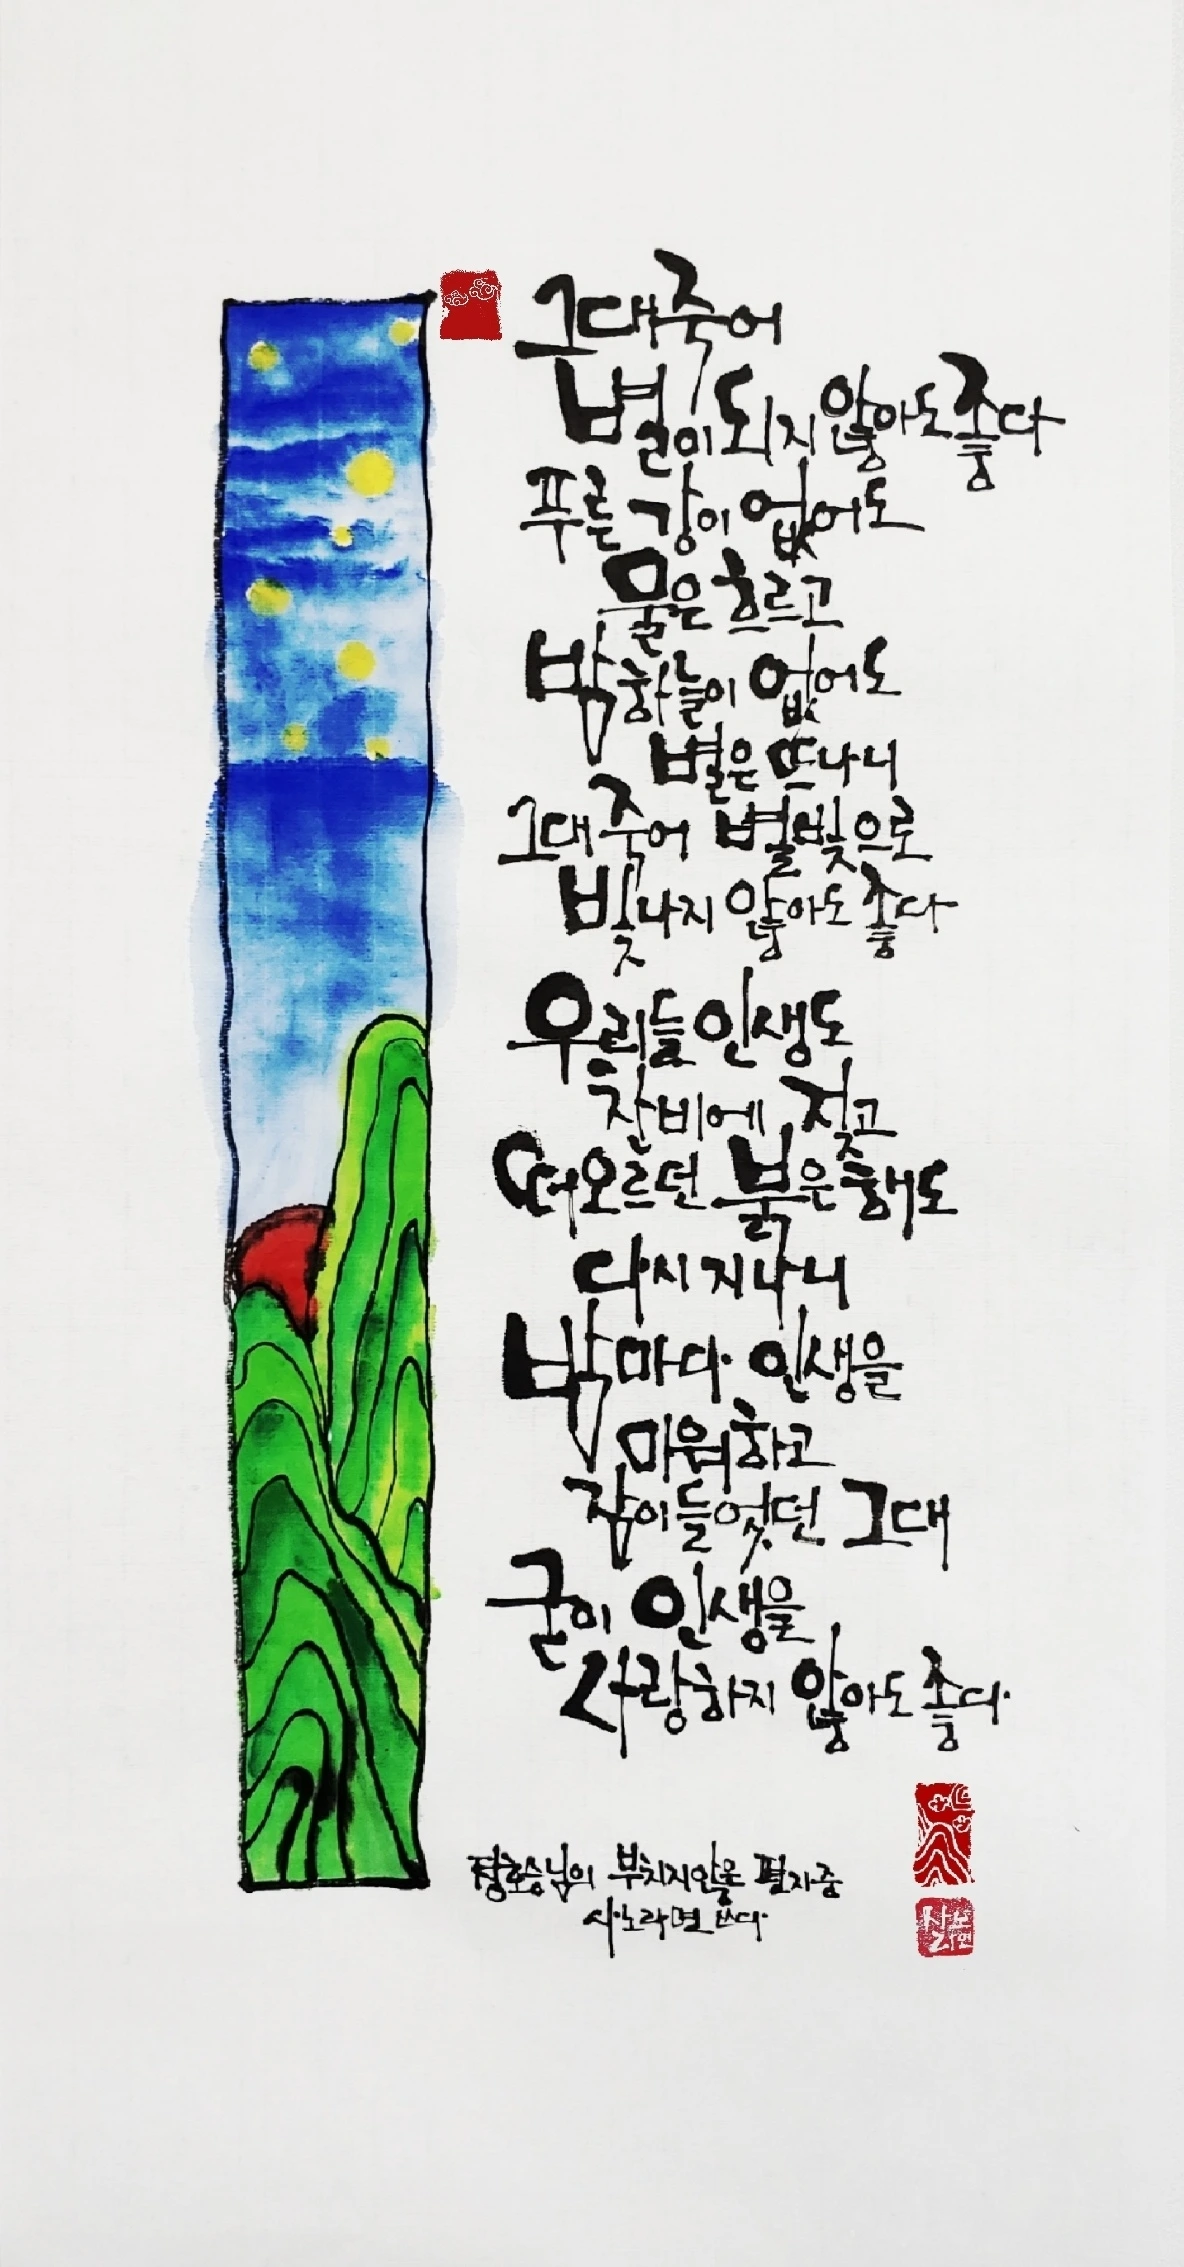 그대 죽어
별이 되지 않아도 좋다
푸른 강이 없어도
물은 흐르고
밤하늘이 없어도
별은 뜨나니
그대 죽어 별빛으로
빛나지 않아도 좋다
우리들 인생도
찬비에 젖고
떠오르던 붉은 해도
다시 지나니
밤마다 인생을
미워하고
잠이 들었던 그대
굳이 인생을
사랑하지 않아도 좋다
정호승님의 부치지않은 편지중
사노라면 쓰다
사노라면